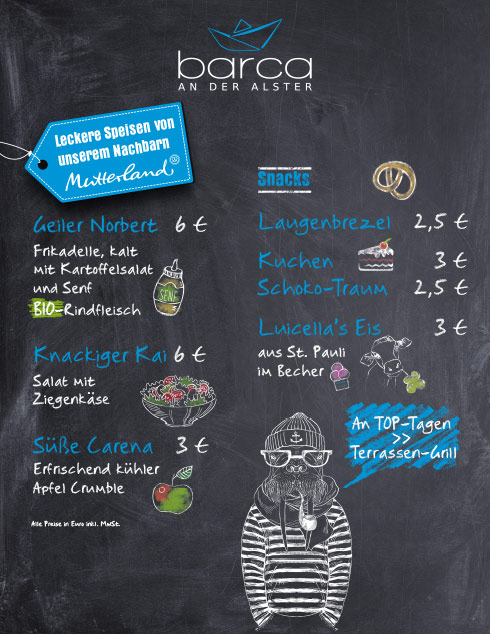 barca
AN DER ALSTER
Leckere Speisen von
unserem Nachbarn
Mutterland
Geiler Norbert 6 €
Frikadelle, kalt
mit Kartoffelsalat
und Senf
BIO-Rindfleisch
SENF
Knackiger Kai 6 €
Salat mit
Ziegenkäse
Süße Carena 3 €
Erfrischend kühler
Apfel Crumble
Alle Preise in Euro inkl. MwSt.
Snacks
Laugenbrezel 2,5 €
Kuchen 3 €
Schoko-Traum 2,5 €
Luicella's Eis 3 €
aus St. Pauli
im Becher
An TOP-Tagen
>>
Terrassen-Grill